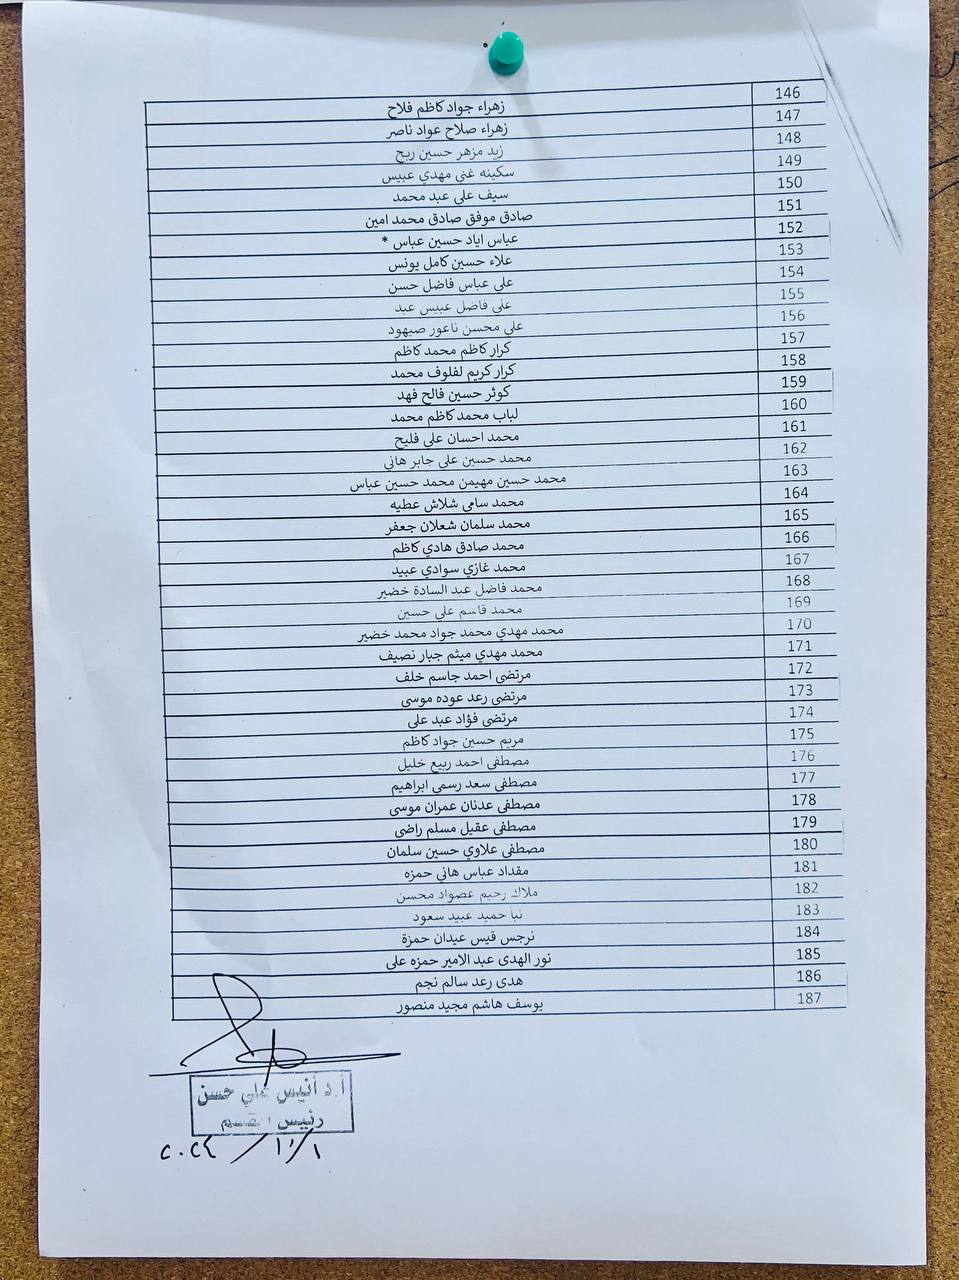 146 زهراء جواد كاظم فلاح
147 زهراء صلاح عواد ناصر
148 زيد مزهر حسين ربح
149 سكينه غني مهدي عبيس
150 سيف علي عبد محمد
151 صادق موفق صادق محمد امين
152 عباس اياد حسين عباس *
153 علاء حسين كامل يونس
154 علي عباس فاضل حسن
155 علي فاضل عبيس عبد
156 علي محسن ناعور صيهود
157 كرار كاظم محمد كاظم
158 كرار كريم لفلوف محمد
159 كوثر حسين فالح فهد
160 لباب محمد كاظم محمد
161 محمد احسان علي فليح
162 محمد حسين علي جابر هاني
163 محمد حسين مهيمن محمد حسين عباس
164 محمد سامي شلاش عطيه
165 محمد سلمان شعلان جعفر
166 محمد صادق هادي كاظم
167 محمد غازي سوادي عبيد
168 محمد فاضل عبد السادة خضير
169 محمد قاسم علي حسين
170 محمد مهدي محمد جواد محمد خضير
171 محمد مهدي ميثم جبار نصيف
172 مرتضى احمد جاسم خلف
173 مرتضى رعد عوده موسى
174 مرتضى فؤاد عبد علي
175 مريم حسين جواد كاظم
176 مصطفى احمد ربيع خليل
177 مصطفى سعد رسمي ابراهيم
178 مصطفى عدنان عمران موسى
179 مصطفى عقيل مسلم راضي
180 مصطفى علاوي حسين سلمان
181 مقداد عباس هاني حمزه
182 ملاك رحيم عصواد محسن
183 نبا حميد عبيد سعود
184 نرجس قيس عيدان حمزة
185 نور الهدى عبد الامير حمزه علي
186 هدى رعد سالم نجم
187 يوسف هاشم مجيد منصور
أ.د أنيس علي حسن
رئيس القسم
٢٠٢٤ / ١٠ / ١